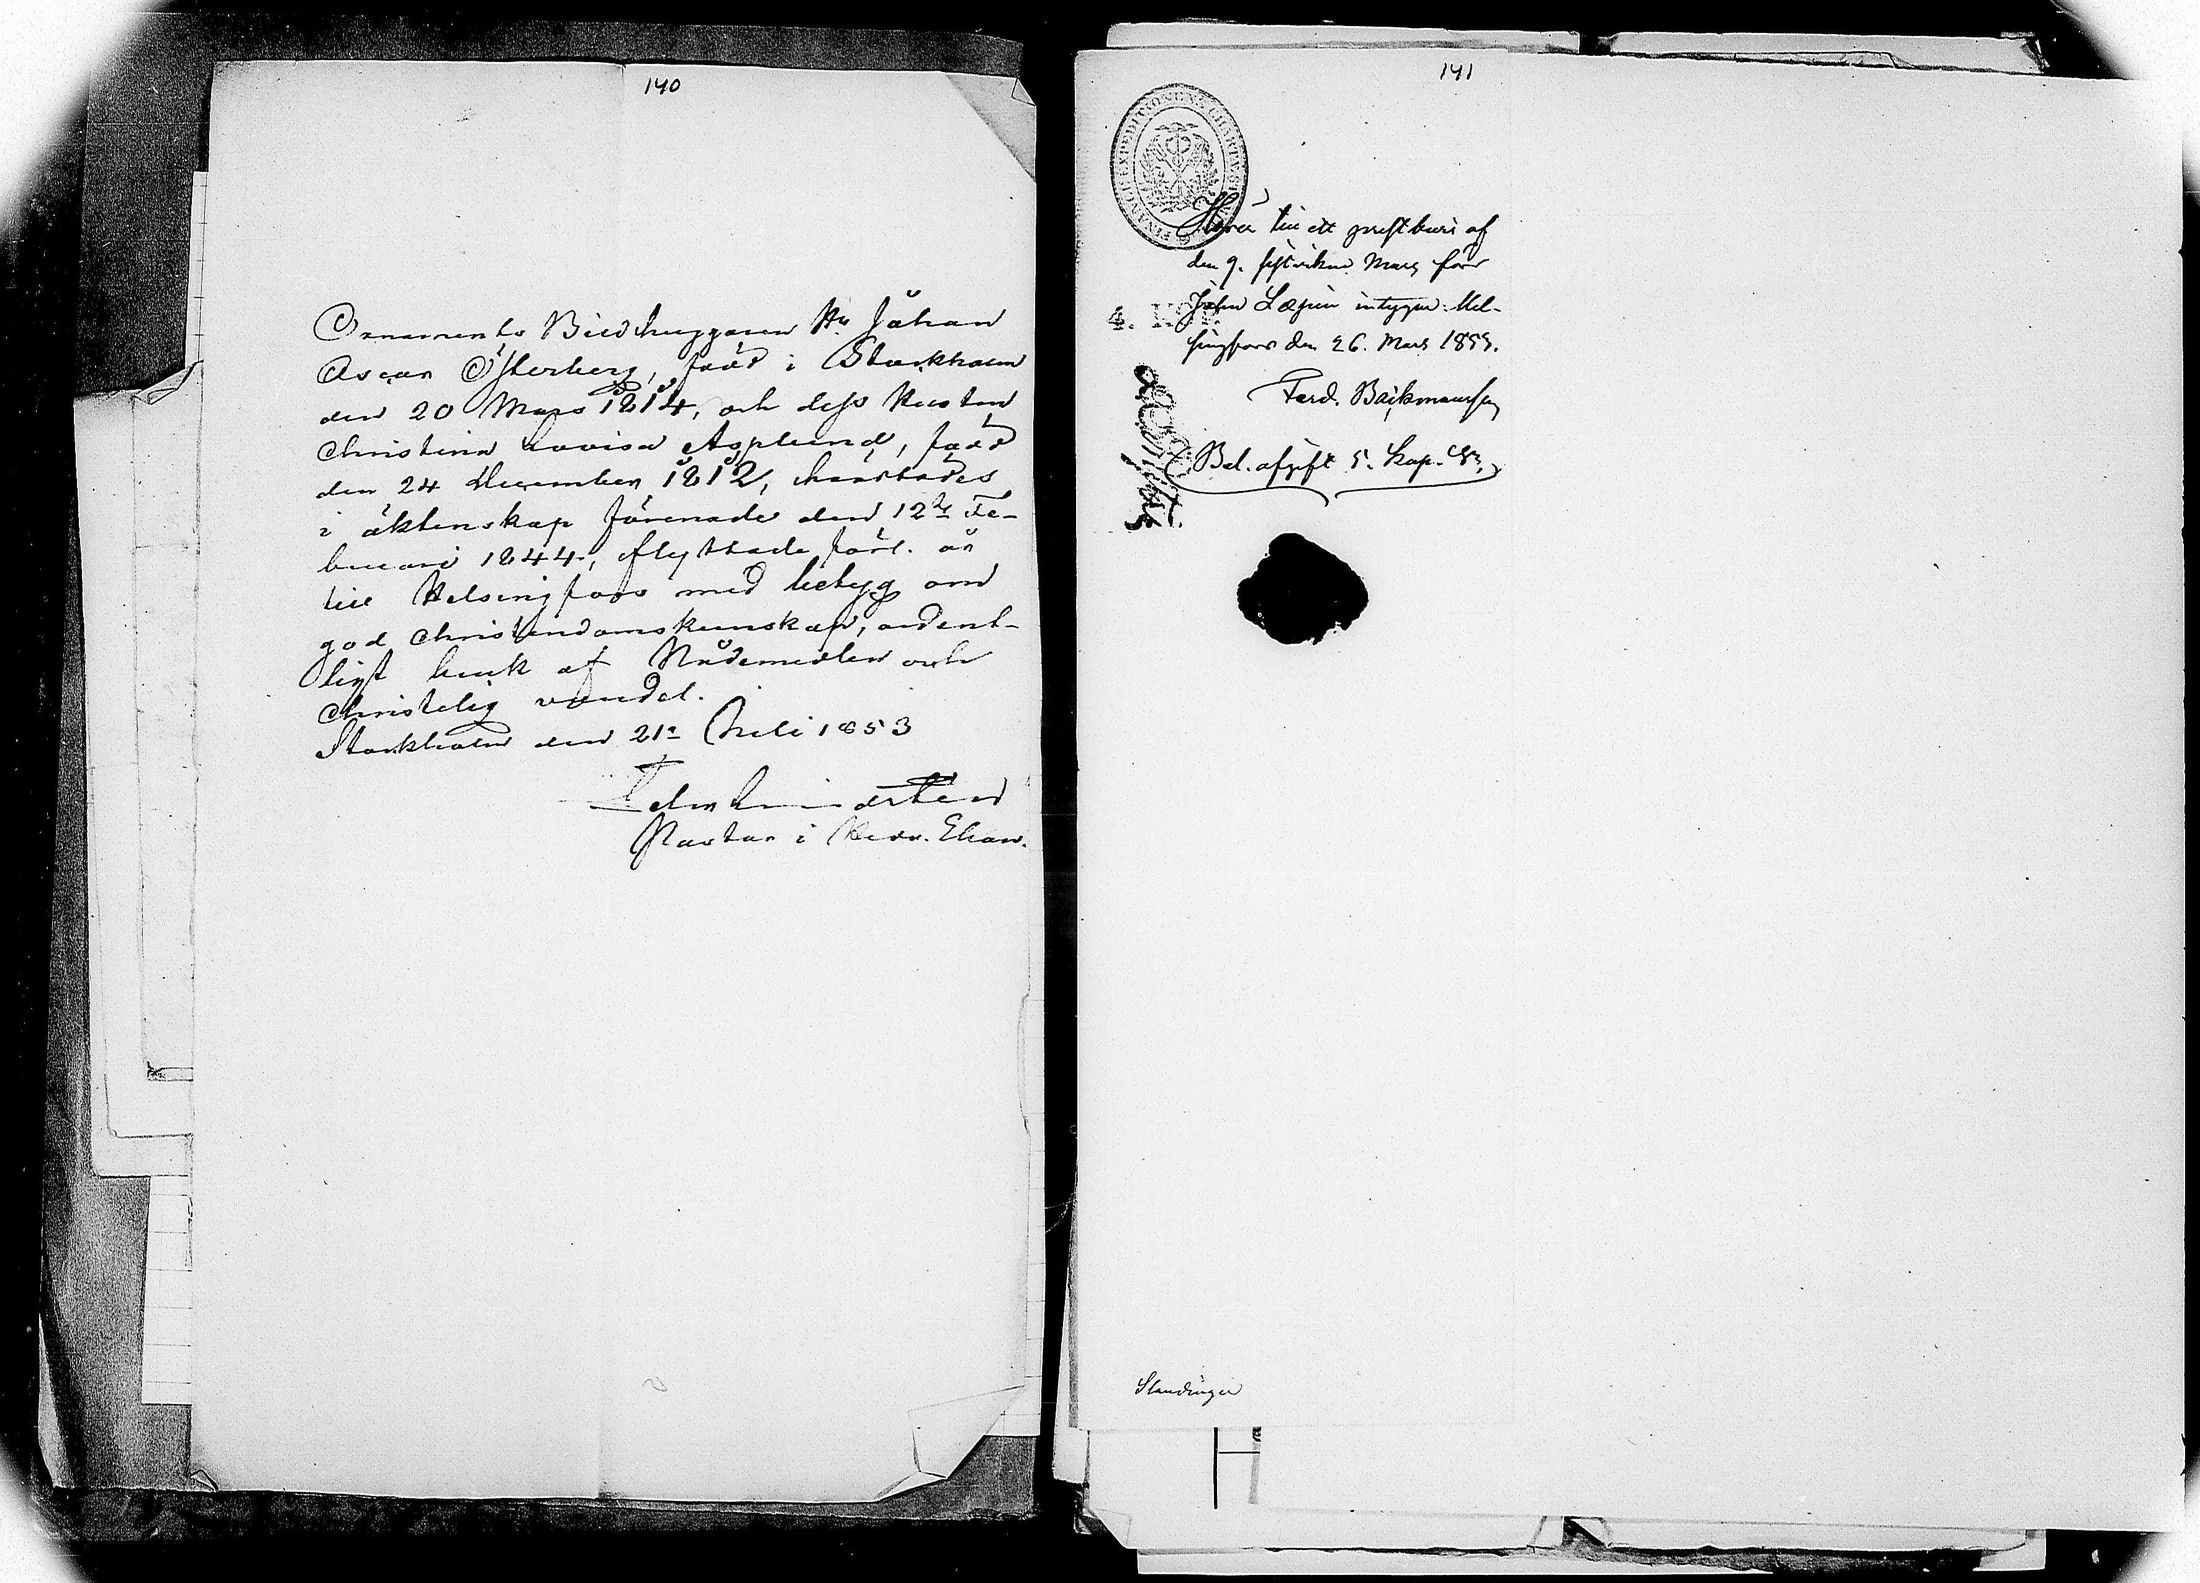 140
Ornaments Bildhuggaren Hr Johan
Oscar Österberg, född i Stockholm
den 20 Mars 1814, och dess Hustru
Christina Lovisa Asplund, född
den 24 December 1812, härstädes
i äktenskap förenade den 12te Fe-
bruari 1844, flyttade förl. år
till Helsingfors med betyg om
god Christendomskunskap, ordent-
ligt bruk af Nådemedlen och
Christelig vandel.
Stockholm den 21a Juli 1853
Pastor i
141
FINANCE EXPEDITIONENS CHARTÆ
till ett prestbevis af
den 9. sistvikne Mars för
John intygar. Hel-
singfors den 26. Mars 1855.
4. KOP.
Ferd.
Bel. afgift 5. kop. Sr.